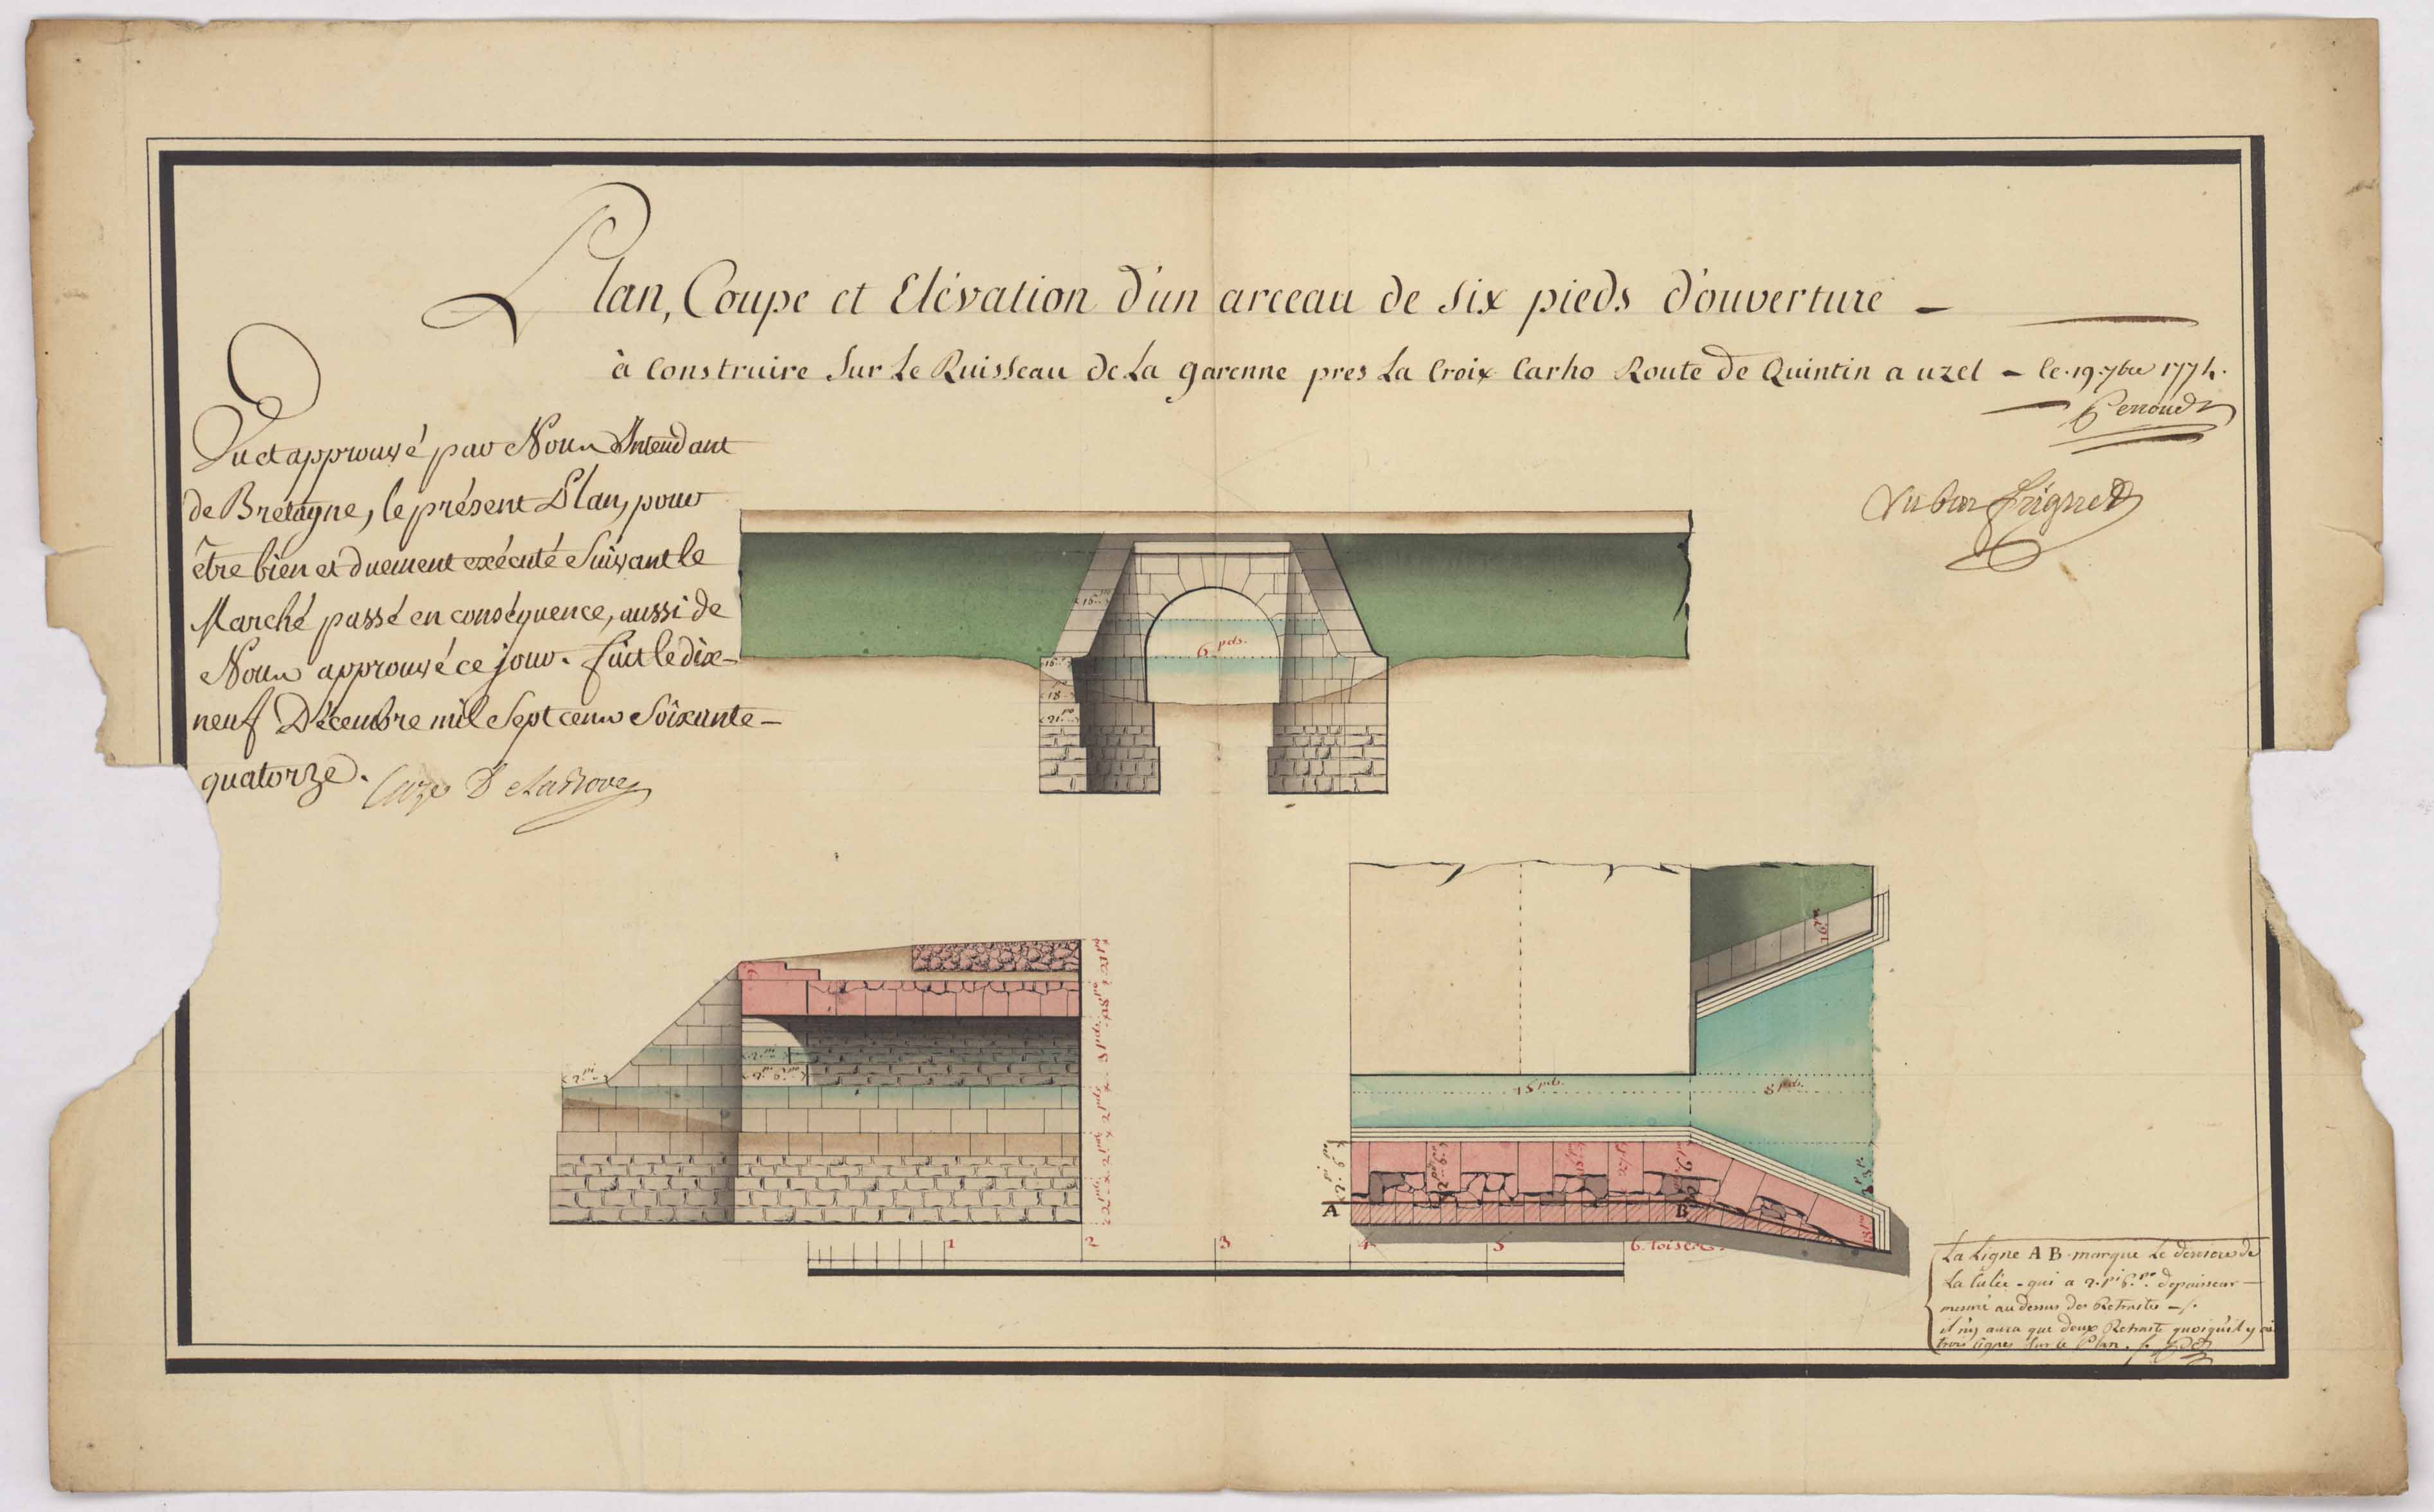 Plan, Coupe et Elévation d'un arceau de six pieds d'ouverture -
à Construire Sur Le Ruisseau de La garenne pres La Croix Carho Route de Quintin a uzel - le .19. 7bre 1774.
Perroud
Vu par Frignet
Vu et approuvé par Nous Intendant
de Bretagne, le présent Plan, pour
être bien et duement exécuté Suivant le
Marché passé en conséquence, aussi de
Nous approuvé ce jour. fait le dix-
neuf Décembre mil Sept cens Soixante-
quatorze.
Caze De La Bove
15 po
6 pds.
18
21 po
2 pi
2 pi 6 po
3 pds
2 pds
2 pds
2 pds
15 pds.
8 pds.
18 po
A
B
1 2 3 4 5 6 toises
La Ligne A B marque Le derriere de
La Culée - qui a 2. pi 6. po d'epaisseur -
mesuré au dessus des Retraites -
il n'y aura que deux Retraite quoiqu'il y ai
trois lignes sur le Plan.